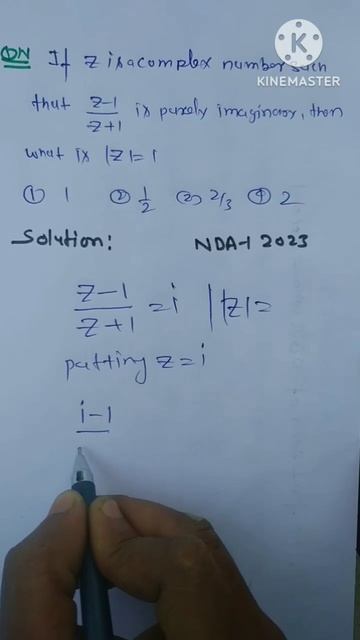 QN If z is a complex number such
KINEMASTER
that z-1/z+1 is purely imaginary, then
what is |z|=1
① 1 ② 1/2 ③ 2/3 ④ 2
Solution: NDA-1 2023
z-1/z+1 = i |z|=
putting z=i
i-1